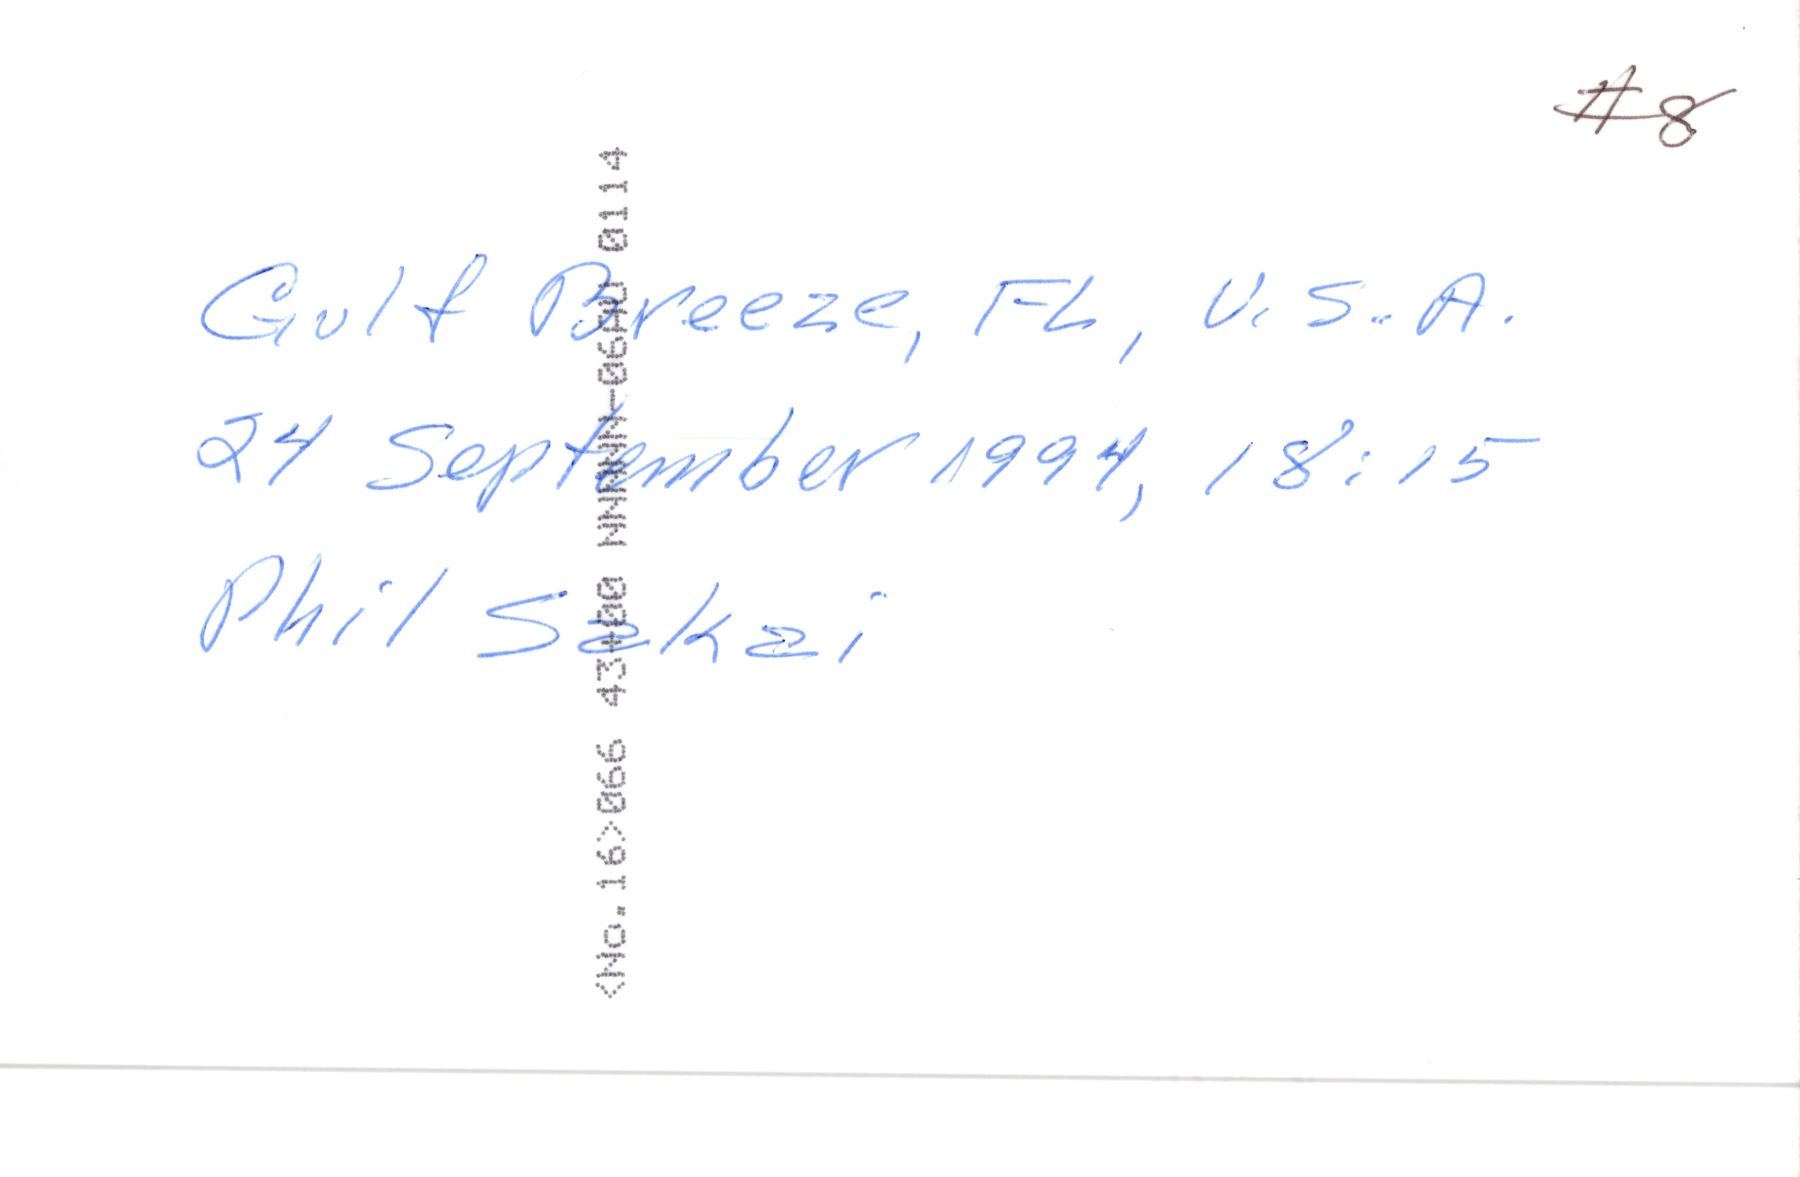 #8
Gulf Breeze, FL, U.S.A.
24 September 1994, 18:15
Phil Sakai
<No.16>066 43+00 NNNN-06AU 0114